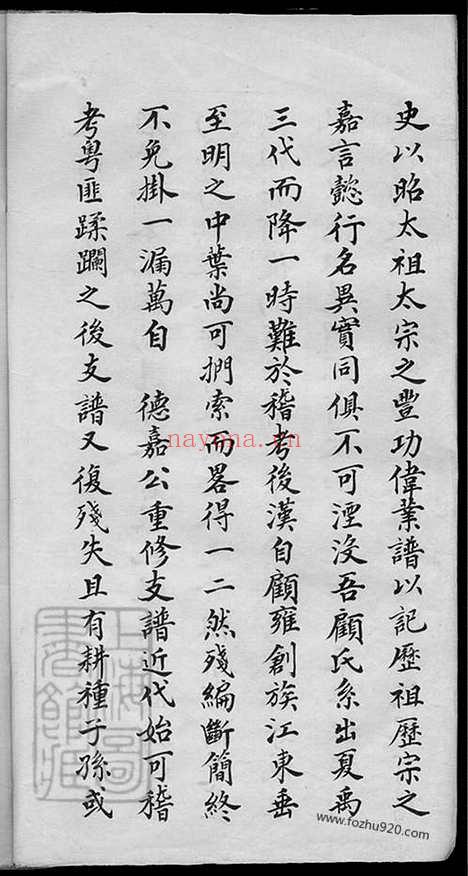 史以昭太祖太宗之豐功偉業譜以記歷祖歷宗之
嘉言懿行名異實同俱不可湮没吾顧氏系出夏禹
三代而降一時難於稽考後漢自顧雍創族江東垂
至明之中葉尚可捫索而畧得一二然殘編斷簡終
不免掛一漏萬自 德嘉公重修支譜近代始可稽
考粤匪蹂躝之後支譜又復殘失且有耕種子孫或
上海圖書館藏
nayona.cn
www.fozhu920.com